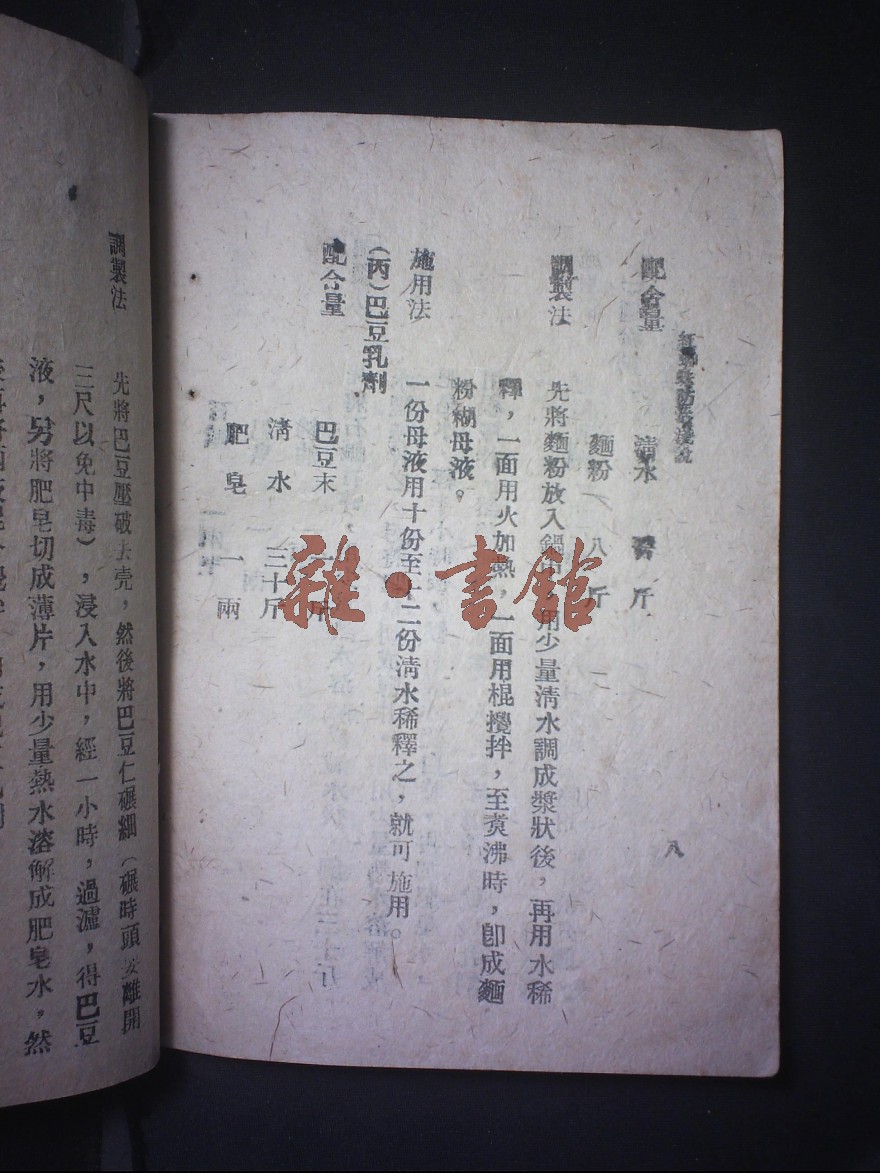 紅蜘蛛防治淺說
八
配合量
清水 斤
麵粉 八斤
調製法
先將麵粉放入鍋中,用少量清水調成漿狀後,再用水稀
釋,一面用火加熱,一面用棍攪拌,至煑沸時,卽成麵
粉糊母液。
施用法
一份母液用十份至十二份清水稀釋之,就可施用。
(丙)巴豆乳劑
配合量
巴豆末 一斤
清水 三十斤
肥皂 一兩
調製法
先將巴豆壓破去壳,然後將巴豆仁碾細(碾時頭要離開
三尺以免中毒),浸入水中,經一小時,過濾,得巴豆
液,另將肥皂切成薄片,用少量熱水溶解成肥皂水,然
雜·書館